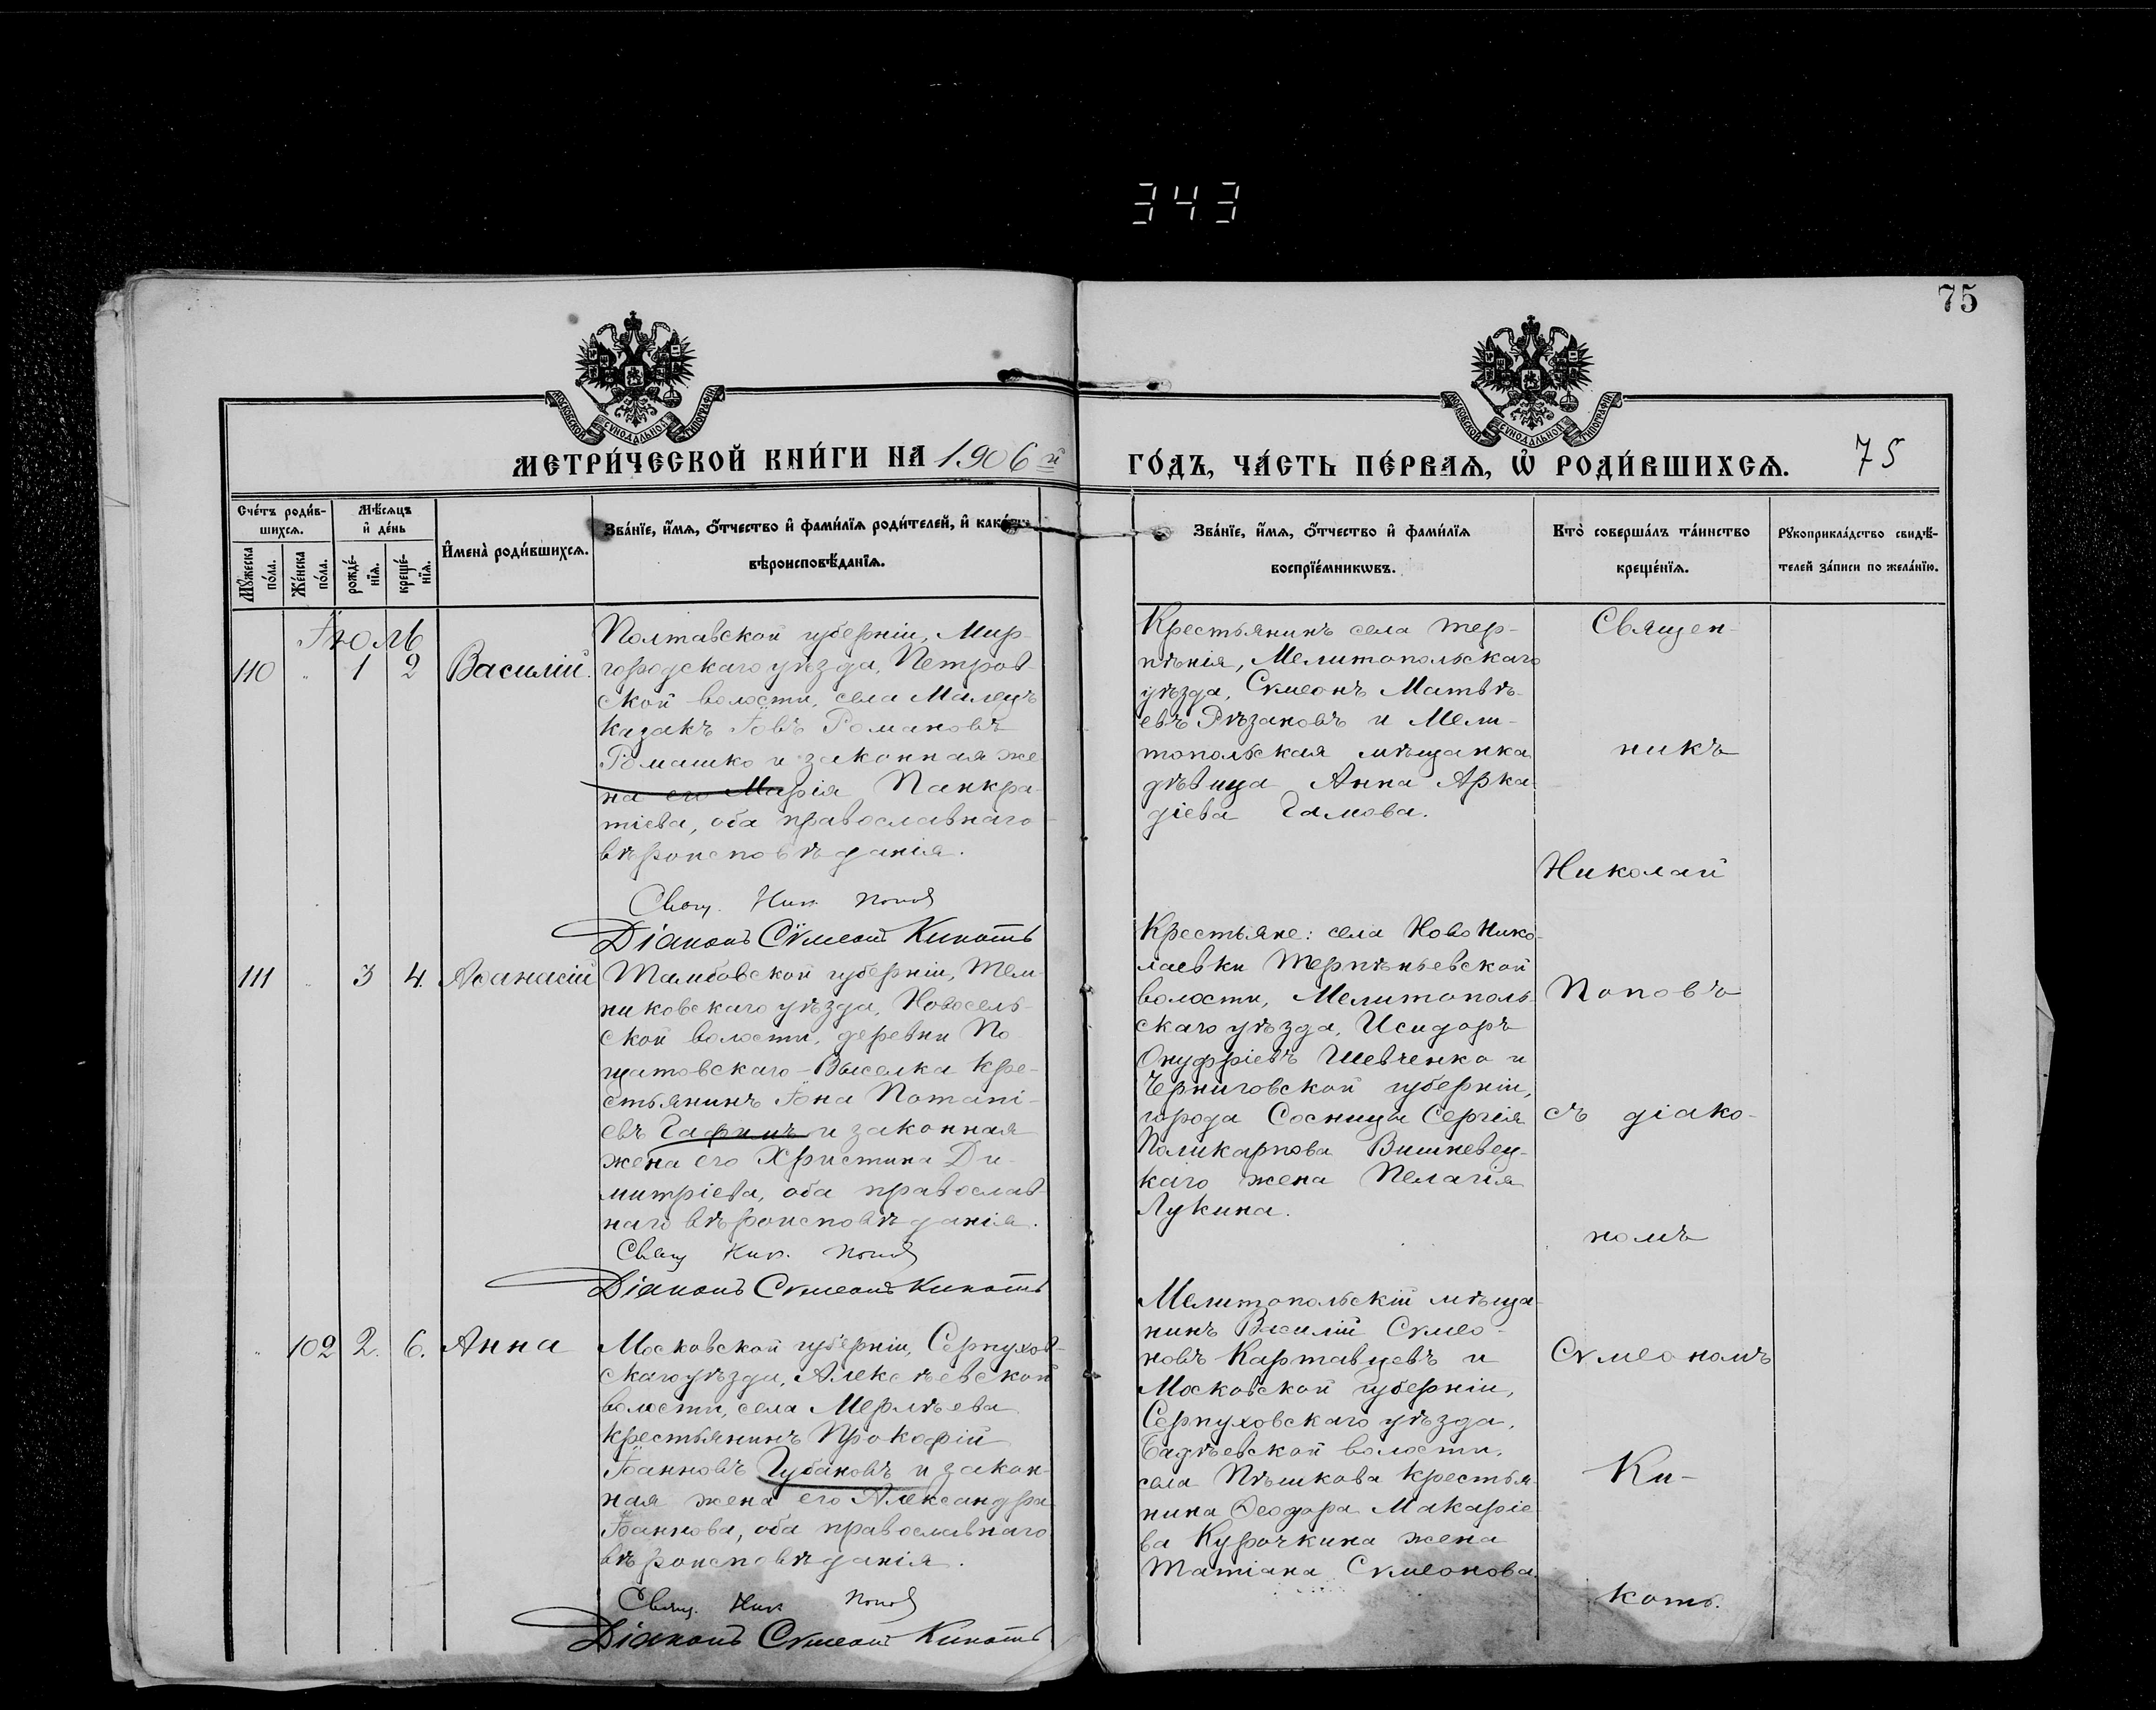 343
75
МОСКОВСКОЙ СѴНОДАЛЬНОЙ ТИПОГРАФІИ
МОСКОВСКОЙ СѴНОДАЛЬНОЙ ТИПОГРАФІИ
МЕТРИ́ЧЕСКОЙ КНИ́ГИ НА 1906й
ГО́ДЪ, ЧА́СТЬ ПЕ́РВАѦ, Ѡ҆ РОДИ́ВШИХСѦ. 75
Счéтъ роди́в-
шихсѧ.
Мꙋ́жеска
по́ла.
Же́нска
по́ла.
Мѣ́сѧцъ
и҆ де́нь
рожде́-
нїѧ.
креще́-
нїѧ.
И҆мена̀ роди́вшихсѧ.
Зва́нїе, и҆́мѧ, ѻ҆́тчество и҆ фами́лїѧ роди́телей, и҆
вѣроисповѣ́данїѧ.
Зва́нїе, и҆́мѧ, ѻ҆́тчество и҆ фами́лїѧ
воспрїе́мникѡвъ.
Кто̀ соверша́лъ та́инство
креще́нїѧ.
Рꙋкоприкла́дство свидѣ́-
телей за́писи по жела́нїю.
Іюль
110 " 1 2 Василій.
Полтавской губерніи, Мир-
городскаго уѣзда, Петров-
ской волости, села Малецъ
казакъ Іовъ Романовъ
Ромашко и законная же
на его Марія Панкра-
тіева, оба православнаго
вѣроисповѣданія.
Свящ. Ник. Попов
Діаконъ Сѵмеонъ Кикоть
Крестьянинъ села Тер-
пѣнія, Мелитопольскаго
уѣзда, Сѵмеонъ Матвѣ-
евъ Рѣзановъ и Мели-
топольская мѣщанка
дѣвица Анна Арка-
діева Гамова.
111 " 3 4. Аѳанасій
Тамбовской губерніи, Тем-
никовскаго уѣзда, Новосель-
ской волости, деревни По
щатовскаго-Выселка кре-
стьянинъ Іона Потапі-
евъ Гафинъ и законная
жена его Христина Ди-
митріева, оба православ-
наго вѣроисповѣданія.
Свящ Ник. Попов
Діаконъ Сѵмеонъ Кикоть
Крестьяне: села Ново Нико-
лаевки Терпѣньевской
волости, Мелитополь-
скаго уѣзда, Исидоръ
Онуфріевъ Шевченко и
Черниговской губерніи,
города Сосницы Сергія
Поликарпова Вишневец-
каго жена Пелагія
Лукина.
" 102 2. 6. Анна
Московской губерніи, Серпухов-
скаго уѣзда, Алексѣевской
волости, села Мерлѣева
крестьянинъ Прокофій
Іоанновъ Губановъ и закон-
ная жена его Александра
Іоаннова, оба православнаго
вѣроисповѣданія.
Свящ. Ник Попов
Діаконъ Сѵмеонъ Кикоть
Мелитопольскій мѣща-
нинъ Василій Сѵмео-
новъ Картавцевъ и
Московской губерніи,
Серпуховскаго уѣзда,
Бадѣевской волости,
села Пѣшкова крестья
нина Ѳеодора Макаріе
ва Курочкина жена
Татіана Сѵмеонова
Священ-
никъ
Николай
Поповъ
съ діако-
номъ
Сѵмеономъ
Ки-
коть.